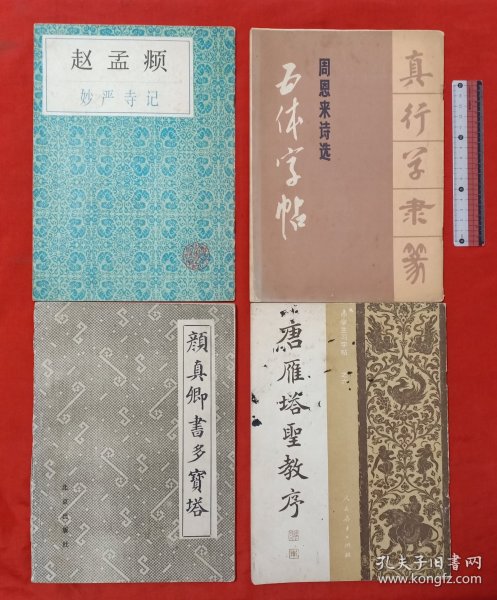 赵孟頫
妙严寺记
周恩来诗选
五体字帖
真行草隶篆
颜真卿書多寶塔
北京出版社
唐雁塔聖教序
小学生习字帖
人民美术出版社
孔夫子旧书网
www.kongfz.com